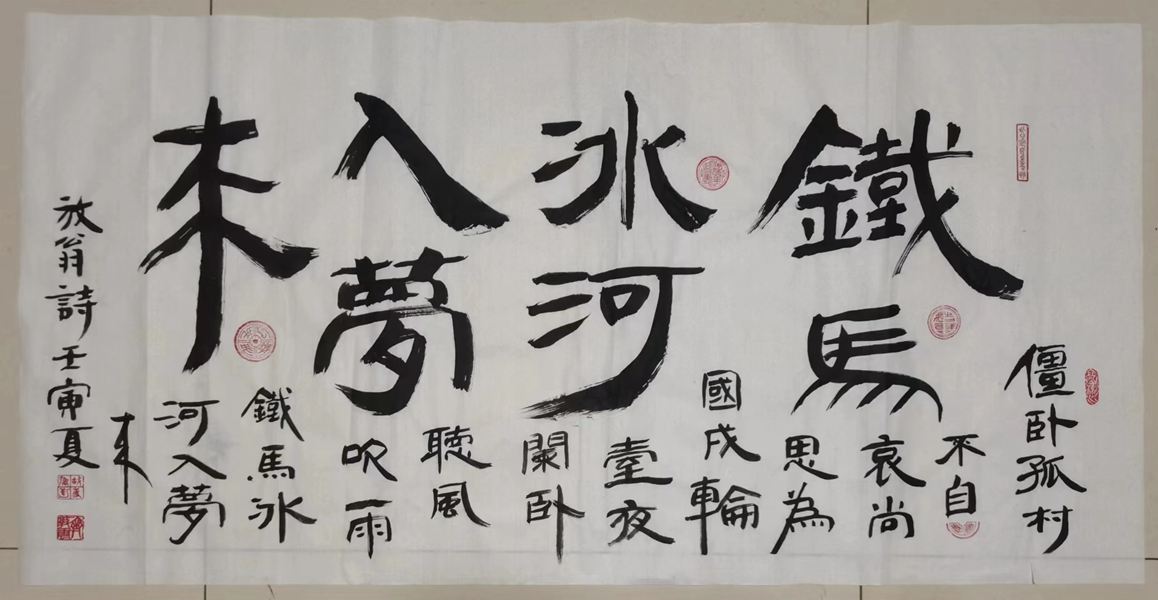 鐵馬
冰河
入夢
来
僵卧孤村
不自
哀尚
思為
國戍輪
臺夜
闌卧
聽風
吹雨
鐵馬冰
河入夢
来
放翁詩壬寅夏